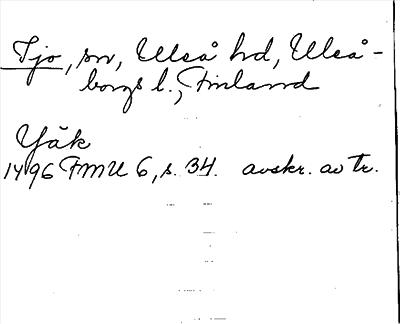 Ijo, sn, Uleå hd, Uleå-
borgs l., Finland
Yäk
1496 FMU 6, s. 34. avskr. av tr.